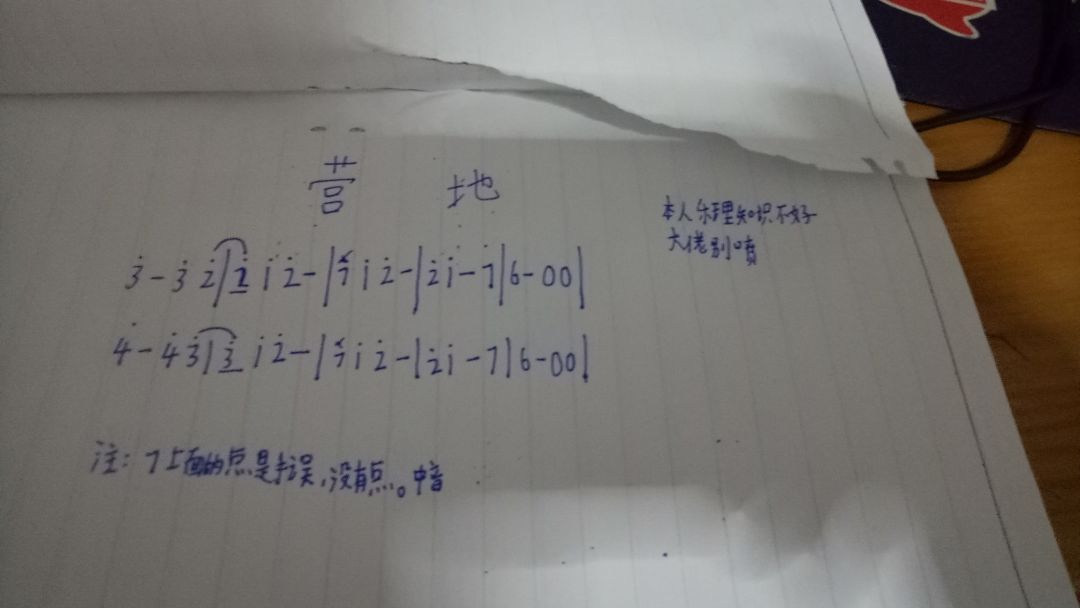 营 地
本人乐理知识不好
大佬别喷
3̇ - 3̇ 2̇ | 2̇ i 2̇ - | 7 i 2̇ - | 2̇ i - 7̇ | 6 - 0 0 |
4̇ - 4̇ 3̇ | 3̇ i 2̇ - | 7 i 2̇ - | 2̇ i - 7 | 6 - 0 0 |
注：7上面的点是手误，没有点。中音